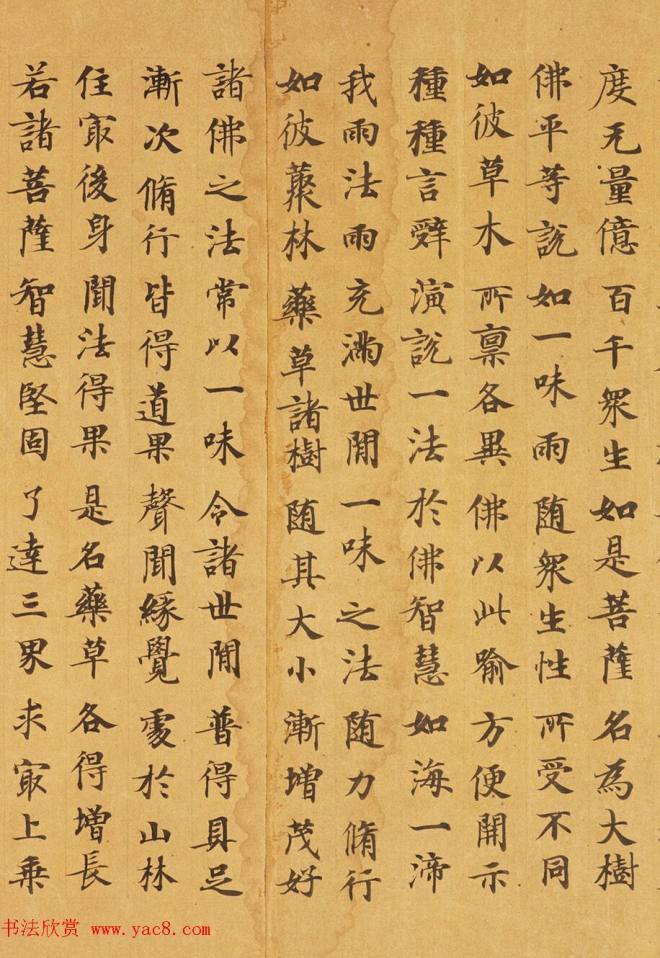 度无量億 百千衆生 如是菩薩 名為大樹
佛平等說 如一味雨 随衆生性 所受不同
如彼草木 所禀各異 佛以此喻 方便開示
種種言辝 演說一法 於佛智慧 如海一渧
我雨法雨 充滿世閒 一味之法 随力脩行
如彼藂林 藥草諸樹 随其大小 漸增茂好
諸佛之法 常以一味 令諸世閒 普得具足
漸次脩行 皆得道果 聲聞緣覺 處於山林
住㝡後身 聞法得果 是名藥草 各得增長
若諸菩薩 智慧堅固 了達三界 求㝡上乗
书法欣赏 www.yac8.com